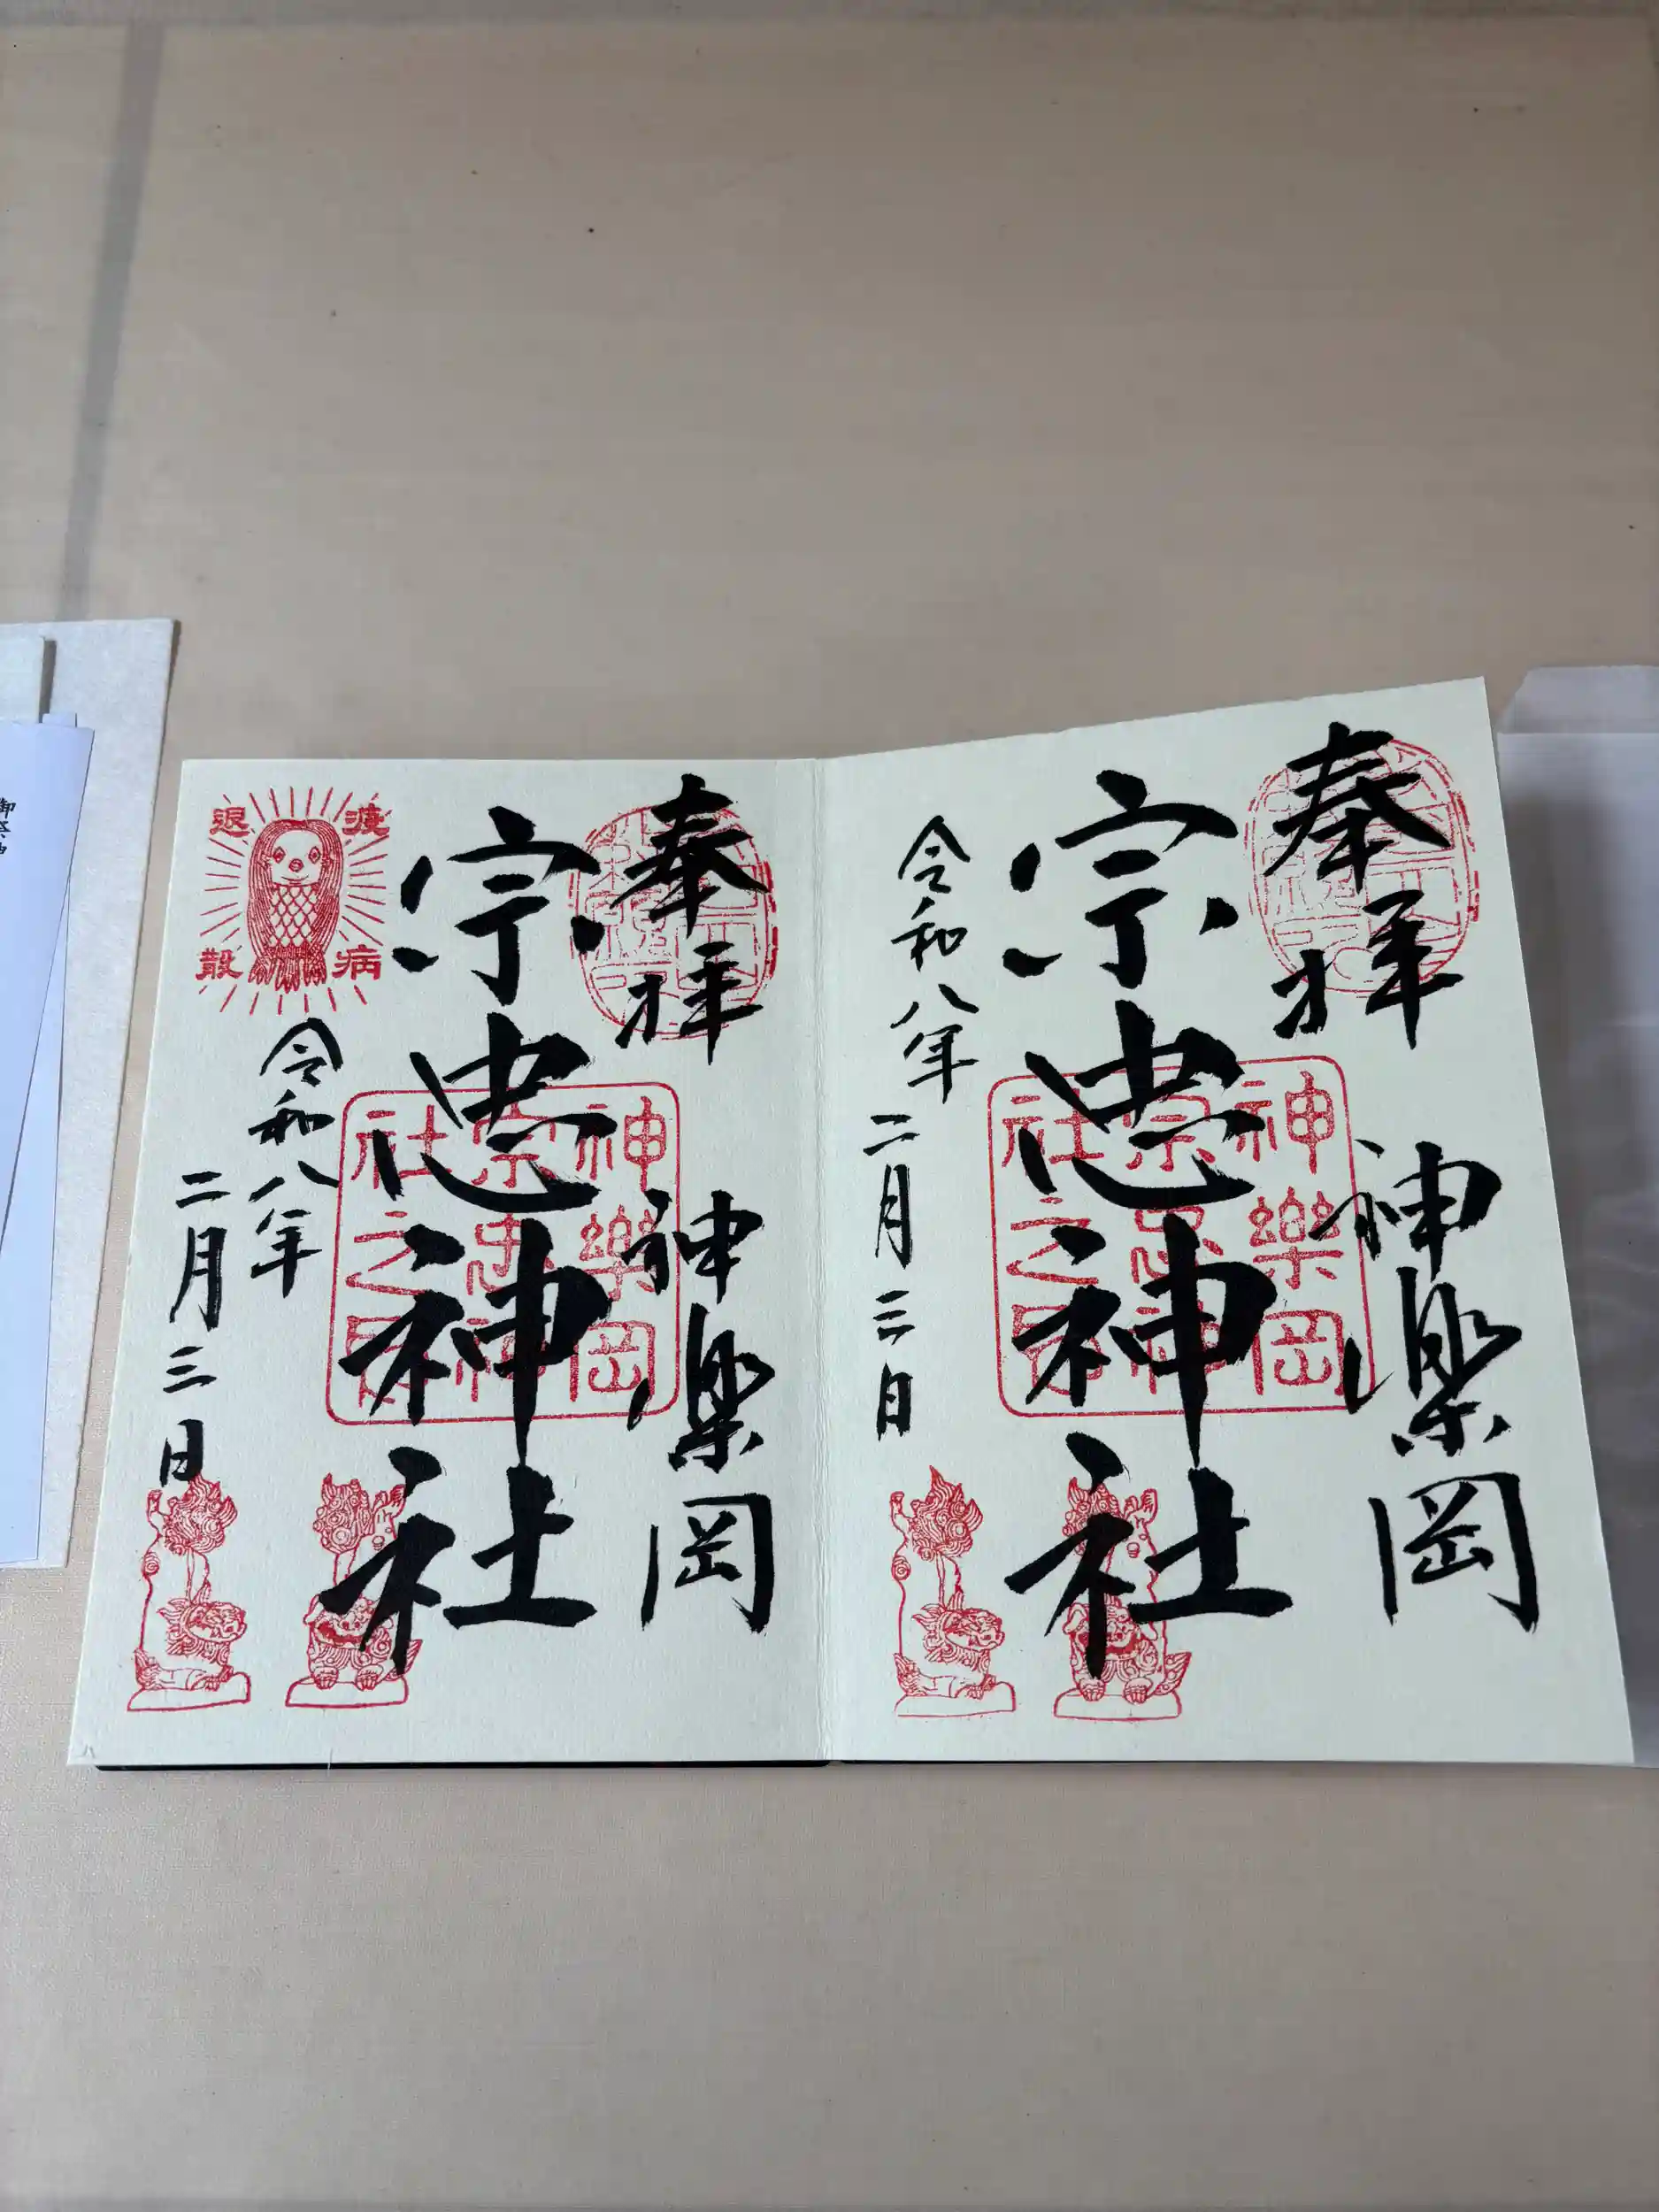 奉拝
神楽岡
宗忠神社
神樂岡
宗忠神
社之
令和八年
二月三日
奉拝
神楽岡
宗忠神社
神樂岡
宗忠神
社之
疫病
退散
令和八年
二月三日
御祭神